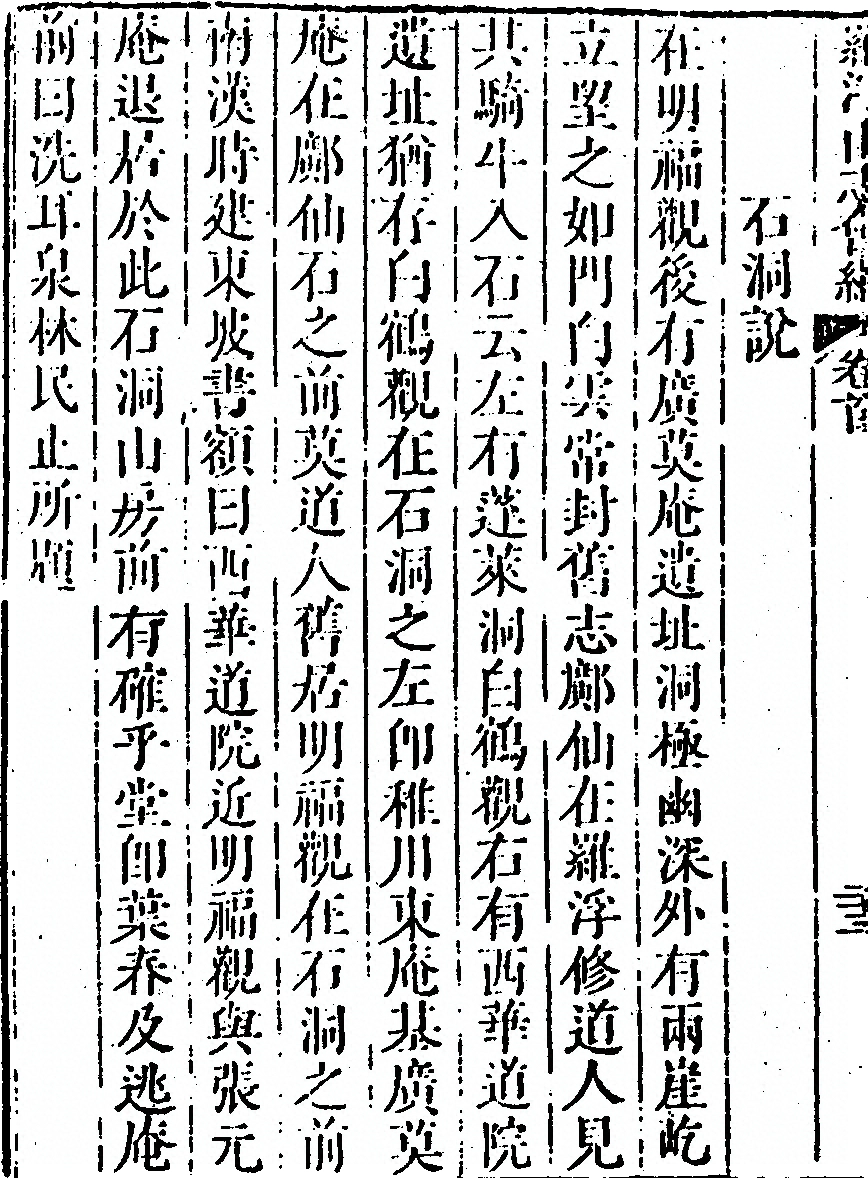 羅浮山志會編 卷首
石洞說
在明福觀後有廣莫庵遺址洞極幽深外有兩崖屹
立望之如門白雲常封舊志鄺仙在羅浮修道人見
共騎牛入石云左有蓬萊洞白鶴觀右有西華道院
遺址猶存白鶴觀在石洞之左卽稚川東庵基廣莫
庵在鄺仙石之前莫道人舊居明福觀在石洞之前
南漢時建東坡書額曰西華道院近明福觀與張元
庵退居於此石洞山房前有確乎堂卽葉春及逃庵
前曰洗耳泉林民止所題